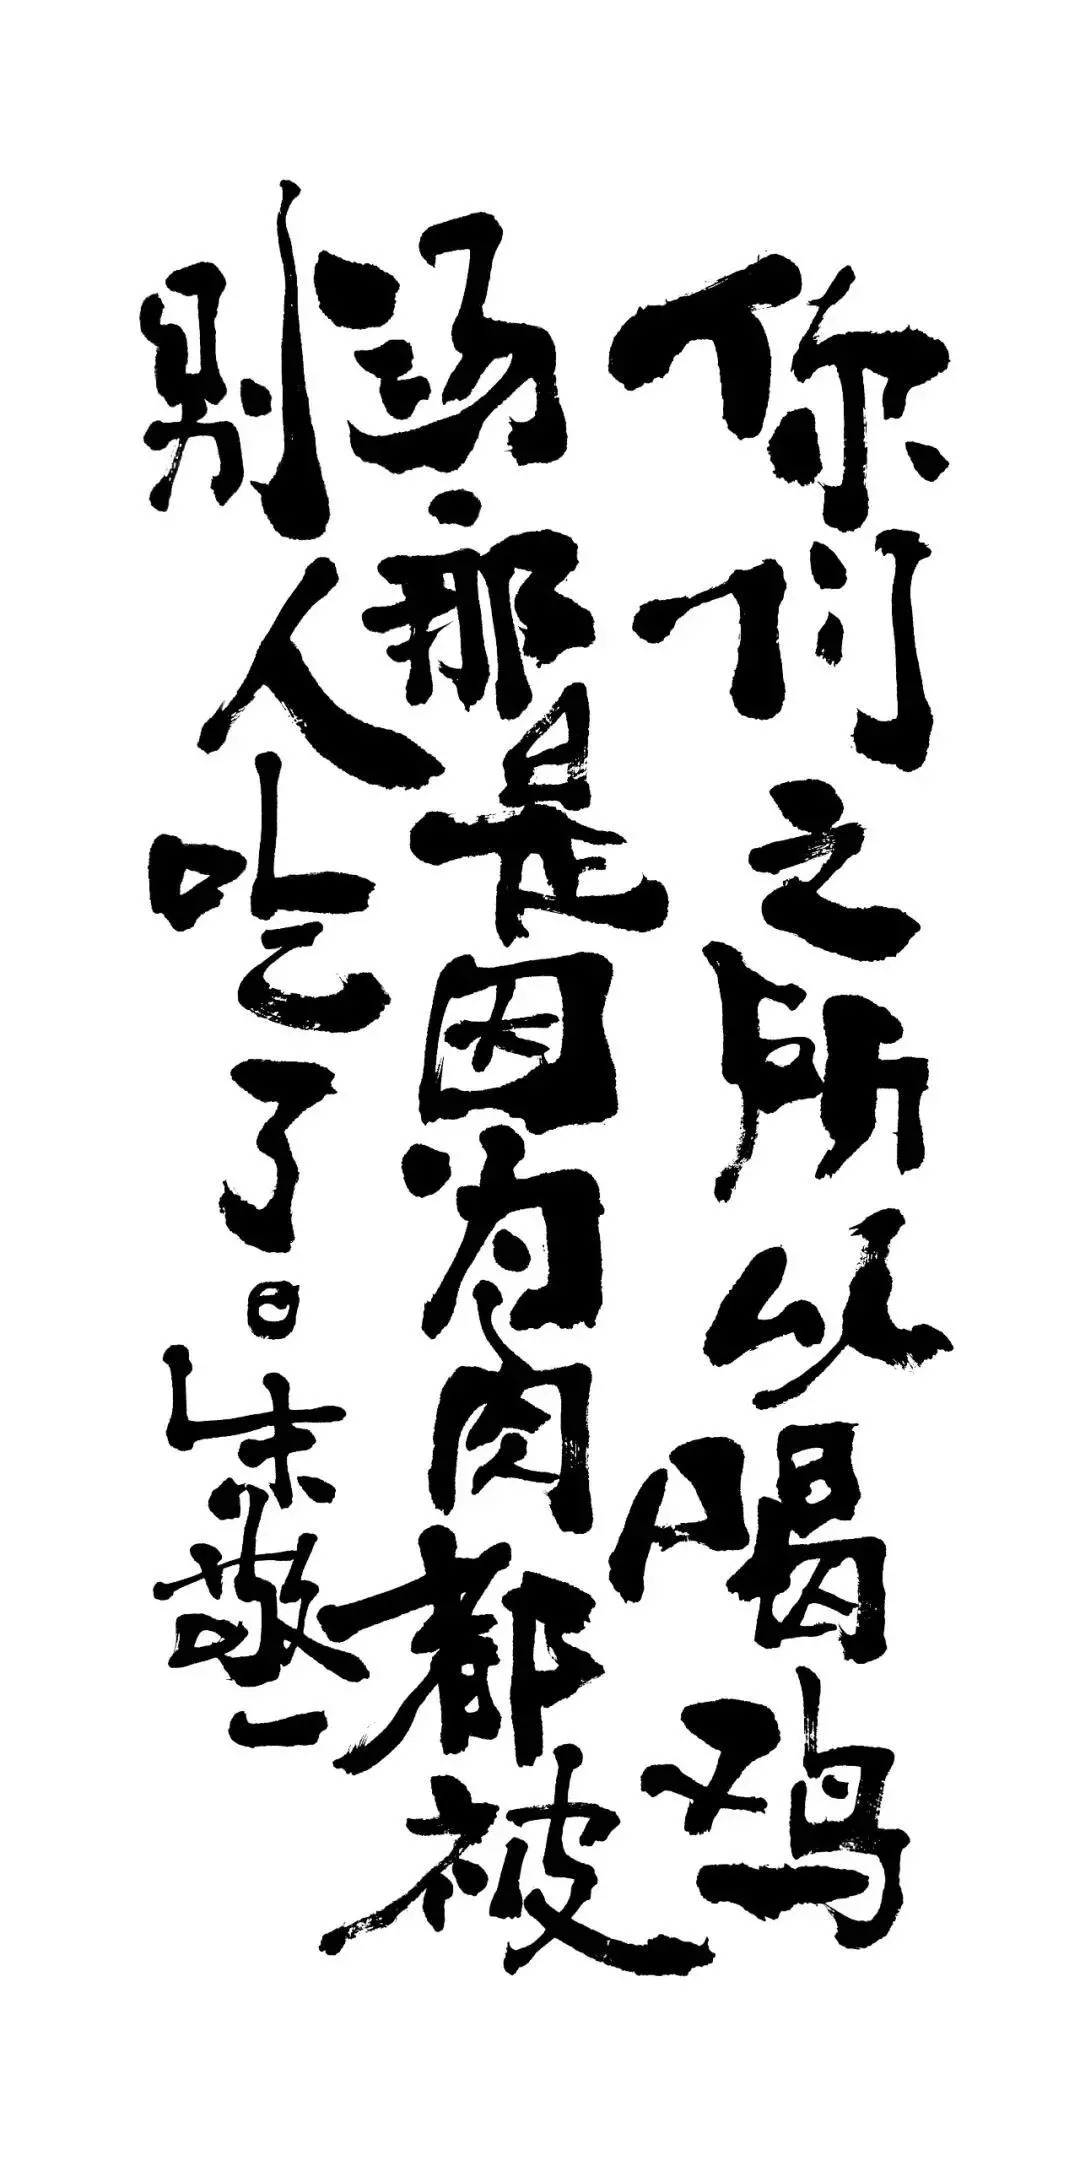 你们之所以喝鸡
汤、那是因为肉都被
别人吃了。朱敬一